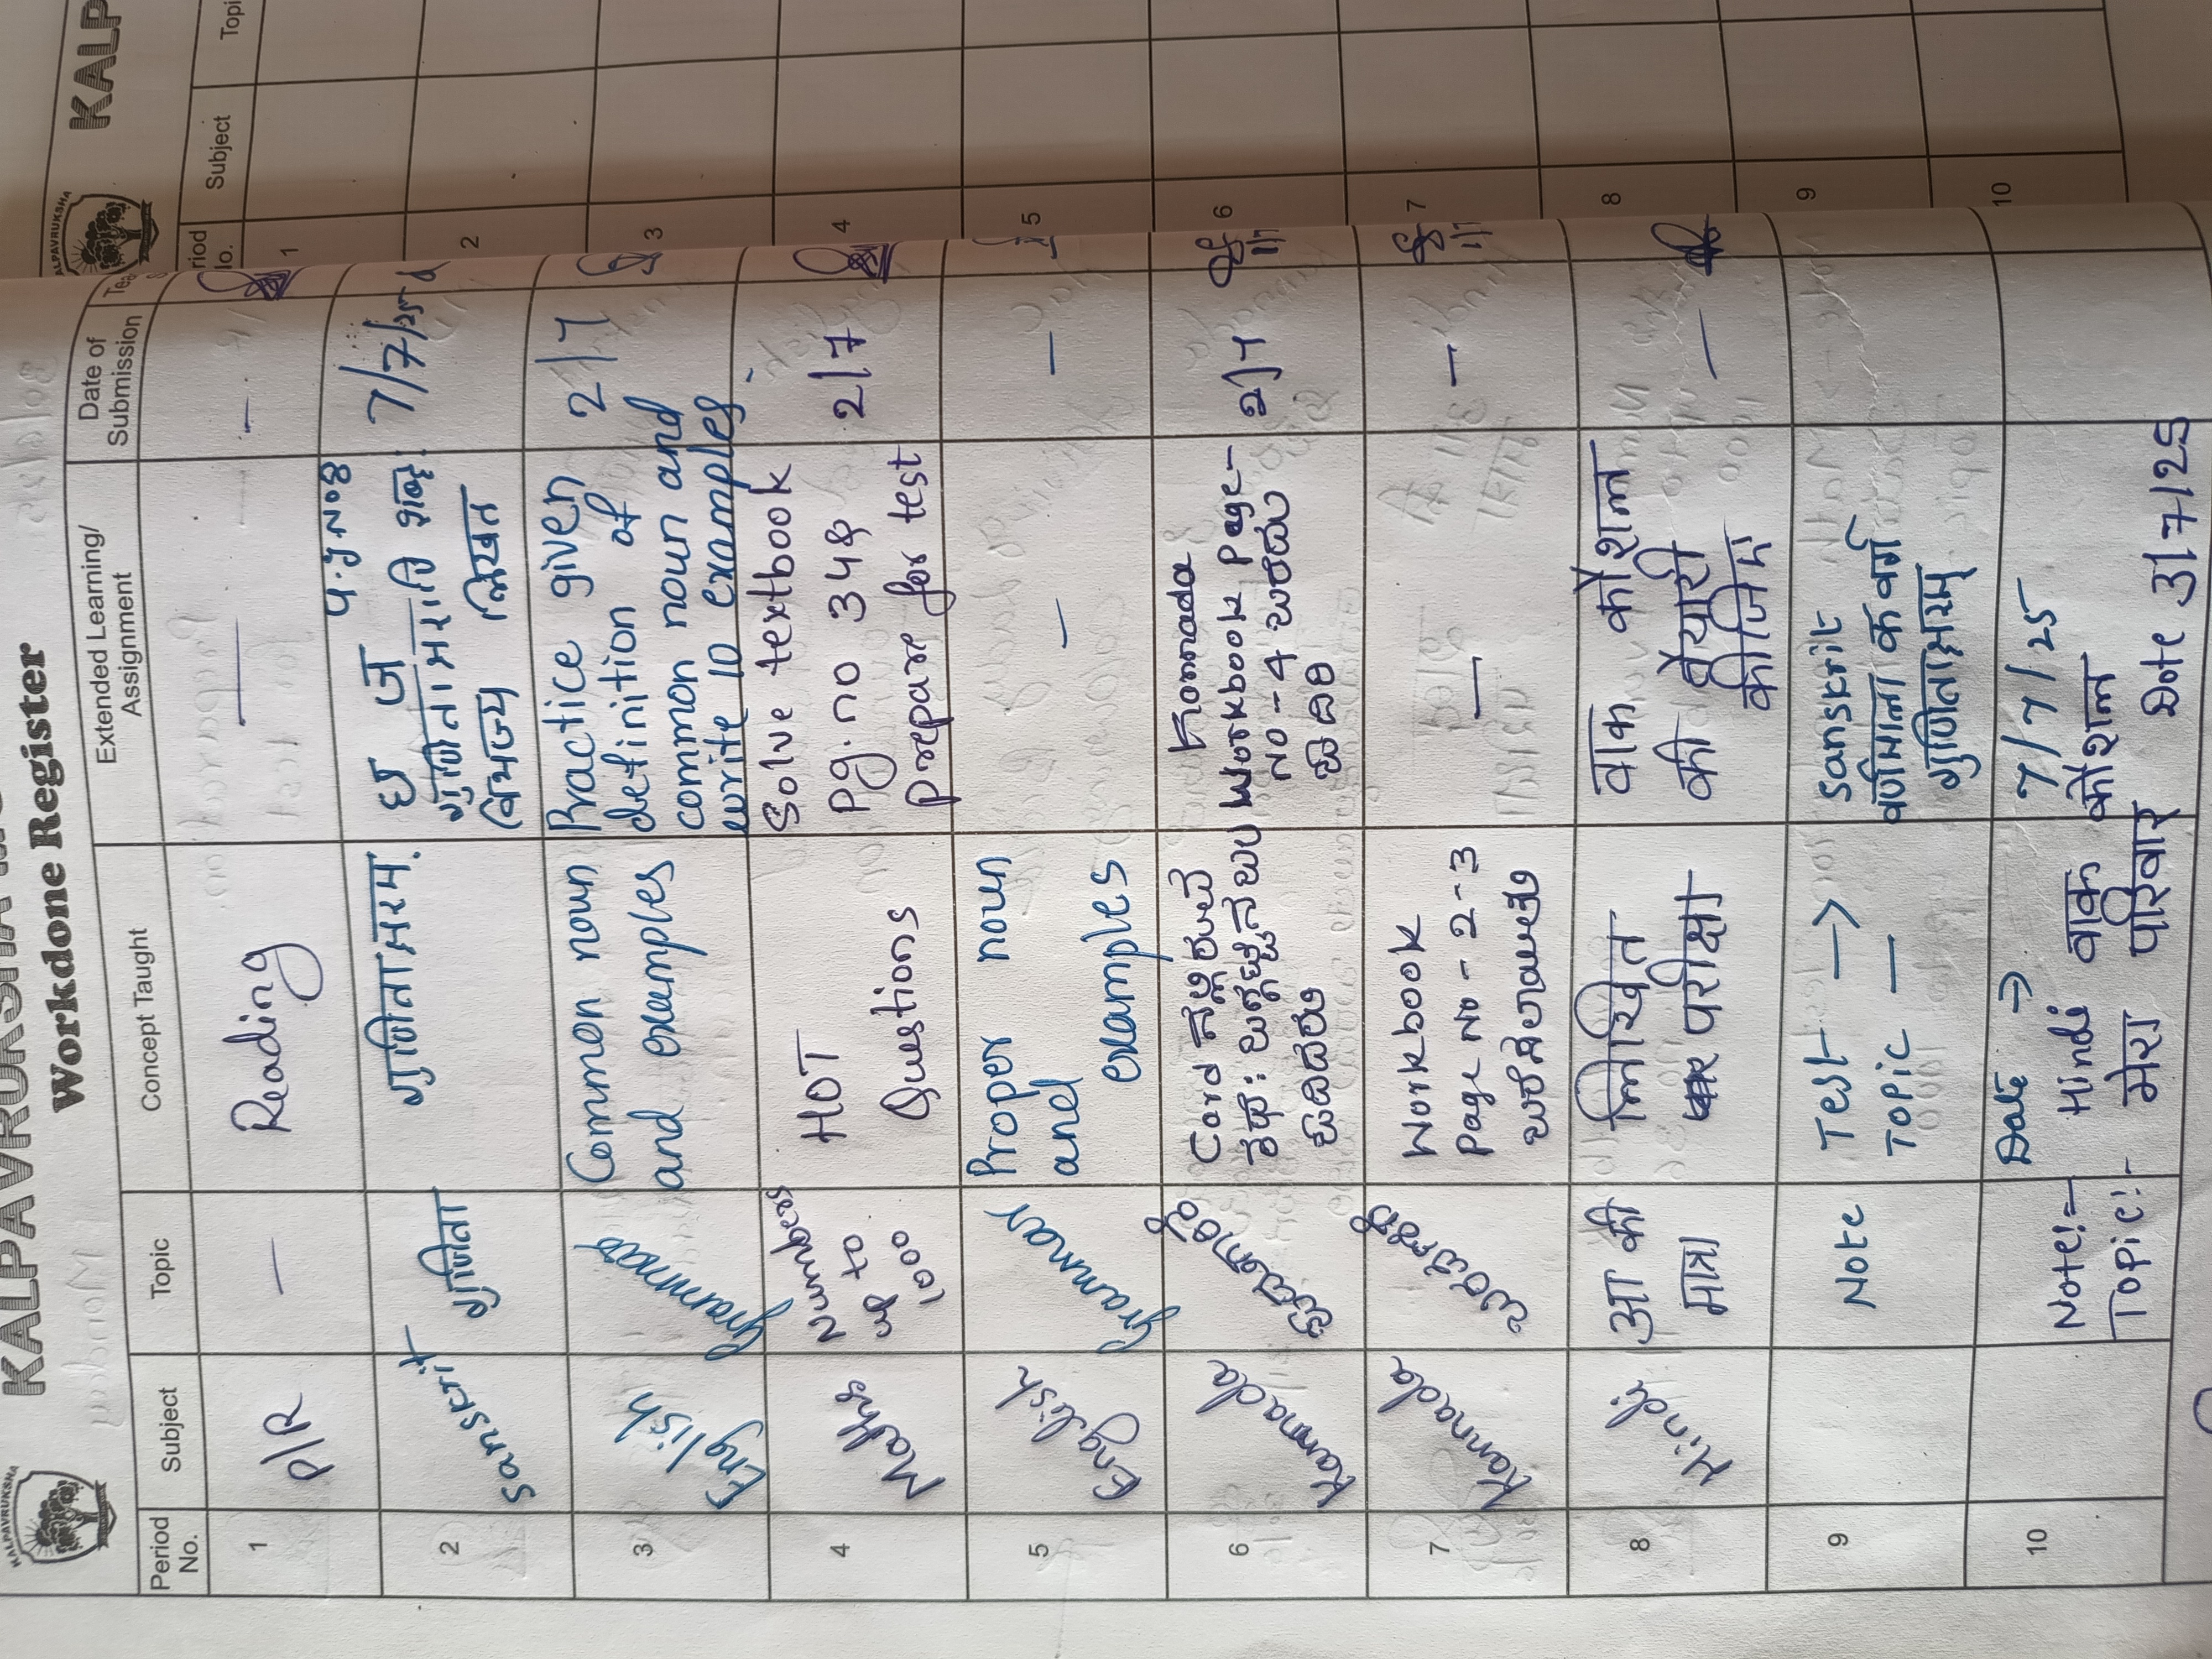 KALPAVRUKSHA
Workdone Register
Period No.
Subject
Topic
Concept Taught
Extended Learning/
Assignment
Date of
Submission
1
P/R
—
Reading
—
—
2
Sanskrit
गुणिता
गुणिताक्षरम्
प.सं.नं०8
छ ज
लिखत
7/7/25
3
English
Grammar
Common noun
and examples
Practice given
definition of
common noun and
write 10 examples
2/7
4
Maths
Numbers
up to
1000
HOT
Questions
Solve textbook
Pg.no 34&
prepare for test
2/7
5
English
Grammar
Proper noun
and
examples
—
—
6
Kannada
Kannada
Workbook Page-
No-4 ಬರೆದು
2/7
7
Kannada
Workbook
Page No-2-3
—
—
8
Hindi
आ की
मात्रा
लिखित
परीक्षा
वाक कौशल
की तैयारी
कीजिए
—
9
Note
Test →
Topic —
Sanskrit
वर्णमाला क वर्ग
गुणिताक्षरम्
10
Date ⇒ 7/7/25
Note:- Hindi वाक कौशल
Topic:- मेरा परिवार Date 3/7/25
KALP
Period
No.
Subject
Topi
1
2
3
4
5
6
7
8
9
10